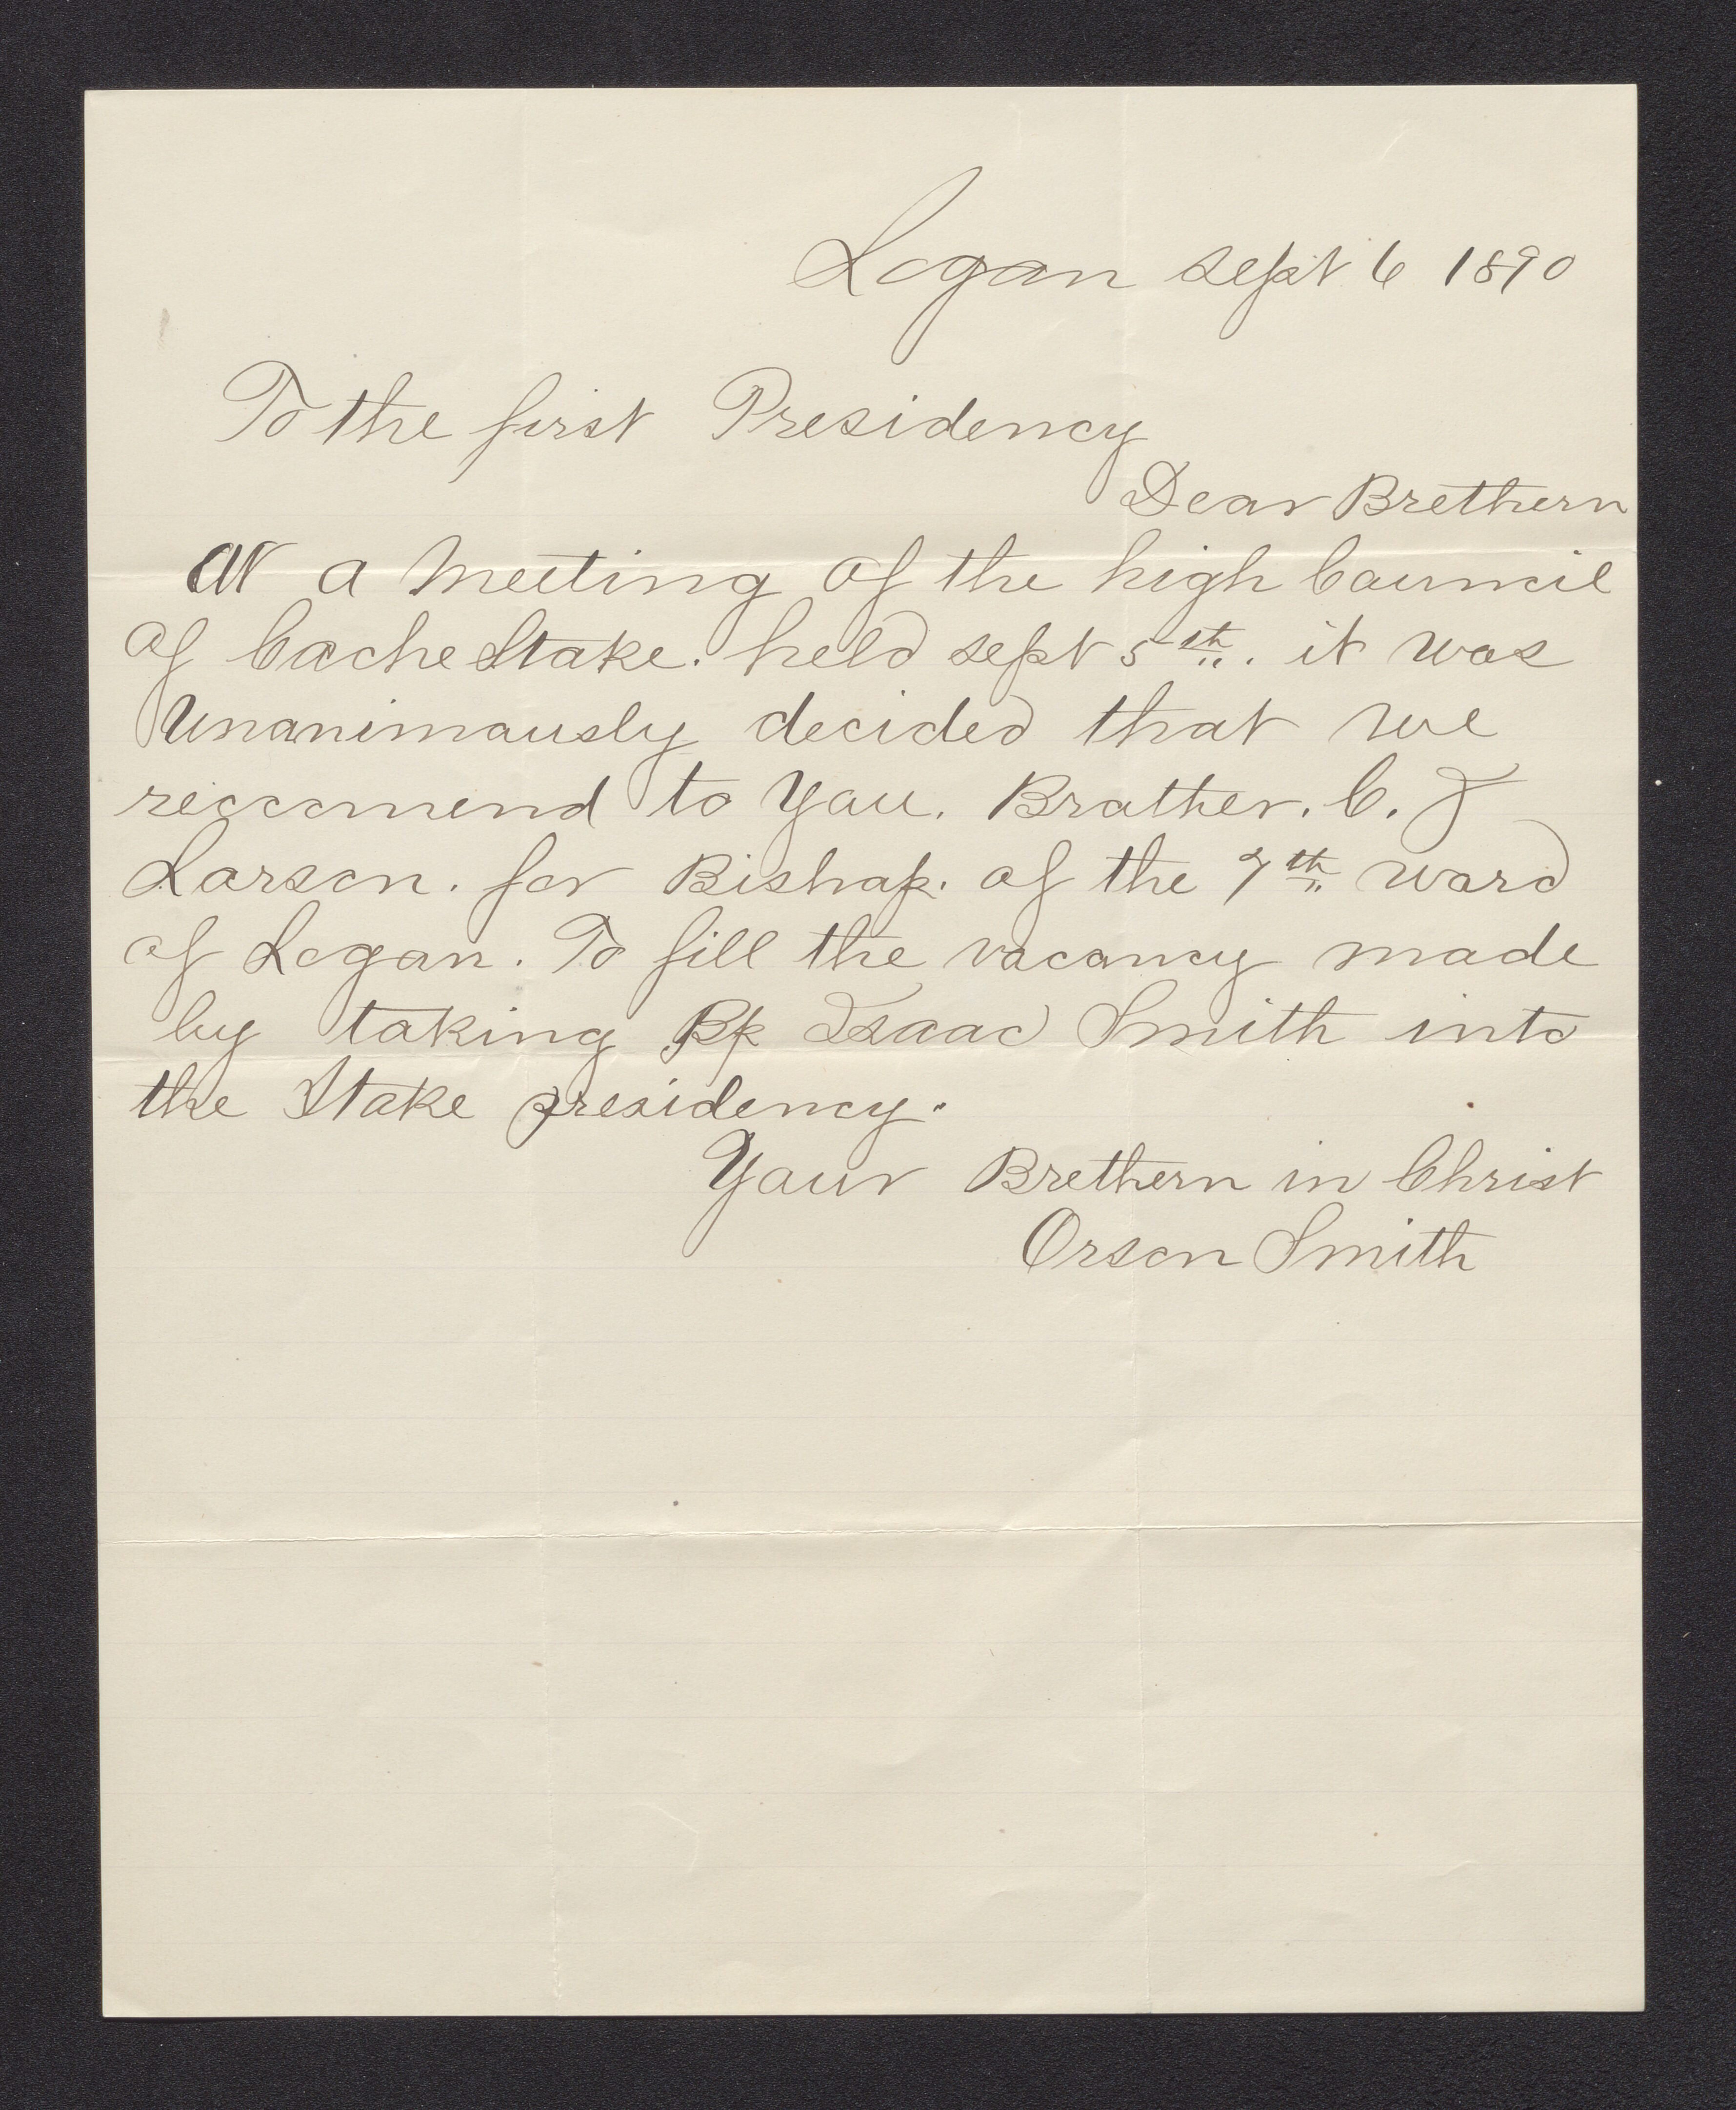 Logan sept 6 1890
To the first Presidency
Dear Brethern
At a Meeting of the high Council
of Cache Stake. held sept 5th. it was
Unanimously decided that we
reccomend to You. Brother. C. J
Larson. for Bishop. of the 7th ward
of Logan. To fill the vacancy made
by taking Bp Isaac Smith into
the Stake presidency.
Your Brethern in Christ
Orson Smith